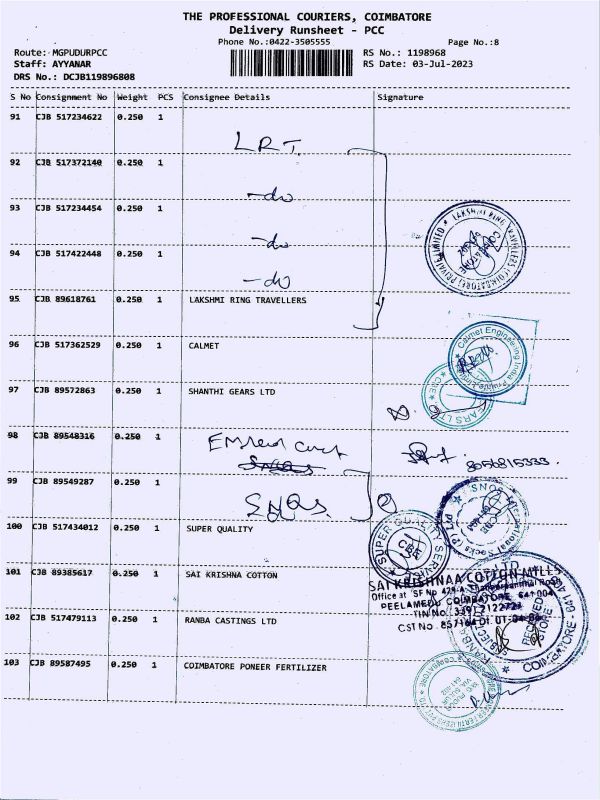 THE PROFESSIONAL COURIERS, COIMBATORE
Delivery Runsheet - PCC
Phone No.:0422-3505555 Page No.:8
Route: MGPUDURPCC RS No.: 1198968
Staff: AYYANAR RS Date: 03-Jul-2023
DRS No.: DCJB119896808
S No Consignment No Weight PCS Consignee Details Signature
91 CJB 517234622 0.250 1
LRT.
92 CJB 517372140 0.250 1
-do
93 CJB 517234454 0.250 1
-do
94 CJB 517422448 0.250 1
-do
95 CJB 89618761 0.250 1 LAKSHMI RING TRAVELLERS
96 CJB 517362529 0.250 1 CALMET
97 CJB 89572863 0.250 1 SHANTHI GEARS LTD
98 CJB 89548316 0.250 1
99 CJB 89549287 0.250 1
SNQS
100 CJB 517434012 0.250 1 SUPER QUALITY
101 CJB 89385617 0.250 1 SAI KRISHNA COTTON
SAI KRISHNAA COTTON MILLS
Office at SF No
PEELAMEDU COIMBATORE 641 004
TIN No
CST No
102 CJB 517479113 0.250 1 RANBA CASTINGS LTD
103 CJB 89587495 0.250 1 COIMBATORE PONEER FERTILIZER